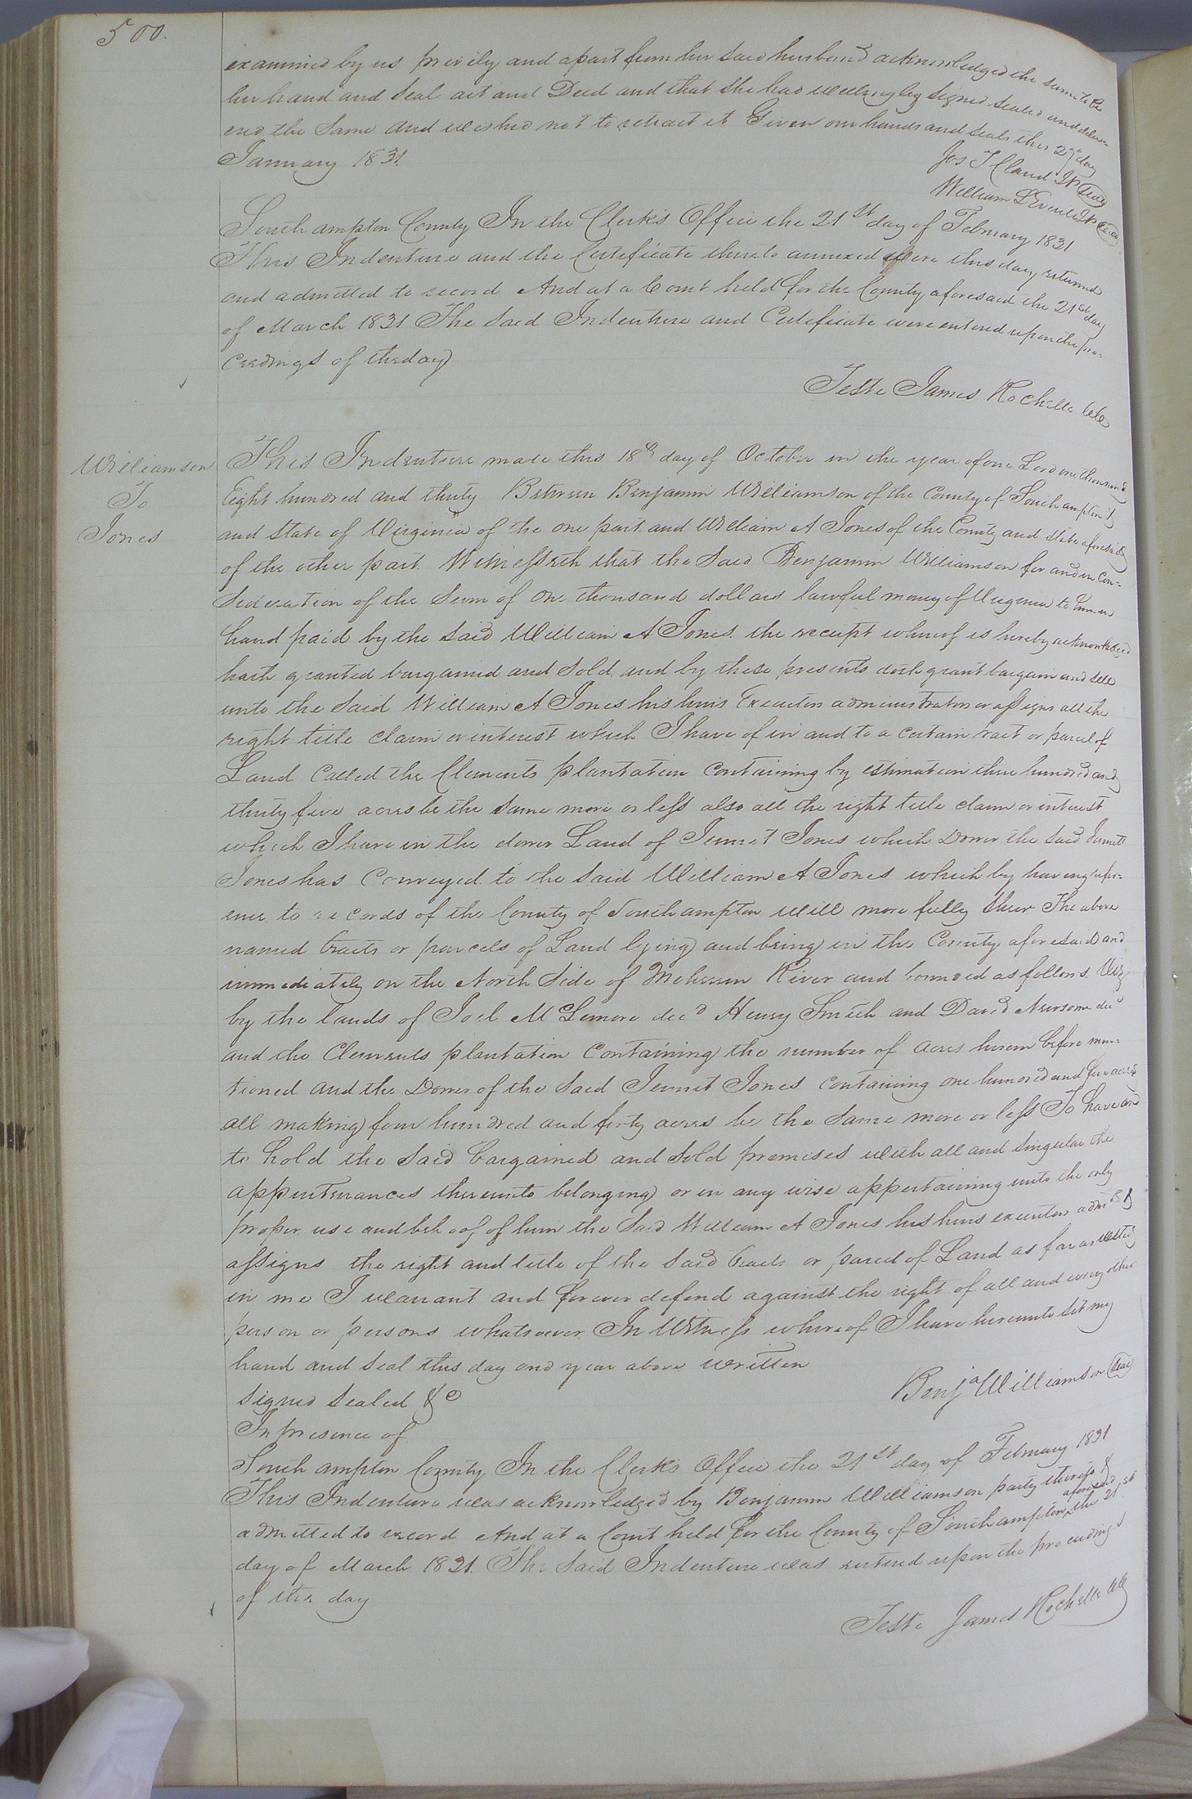 500.
examined by us privily and apart from her said husband acknowledged the same to be
her hand and Seal act and Deed and that she had willingly signed sealed and deliv-
ered the Same and wished not to retract it Given our hands and seals this day
January 1831.
Jos T Claud JP Seal
William JP Seal
Southampton County In the Clerk's Office the 21st day of February 1831
This Indenture and the Certificate thereto annexed were this day returned
and admitted to record And at a Court held for the County aforesaid the 21st day
of March 1831 The Said Indenture and Certificate were entered upon the pro-
ceedings of the day
Teste James Rochelle Clk
Williamson
To
Jones
This Indenture made this 18th day of October in the year of our Lord one thousand
Eight hundred and thirty Between Benjamin Williamson of the County of Southampton
and State of Virginia of the one part and William A Jones of the County and State aforesaid
of the other part Witnesseth that the Said Benjamin Williamson for and in Con-
sideration of the Sum of One thousand dollars lawful money of Virginia to him in
hand paid by the Said William A Jones the receipt whereof is hereby acknowledged
hath granted bargained and Sold and by these presents doth grant bargain and sell
unto the Said William A Jones his heirs Executors administrators or assigns all the
right title claim or interest which I have of in and to a certain tract or parcel of
Land Called the Clements plantation Containing by estimation three hundred and
thirty five acres be the Same more or less also all the right title claim or interest
which I have in the dower Land of Jones which Dower the Said
Jones has Conveyed to the Said William A Jones which by having refer-
ence to records of the County of Southampton will more fully Shew The above
named tracts or parcels of Land lying and being in the County aforesaid and
immediately on the North Side of Meherrin River and bounded as follows Viz
by the lands of Joel McLemore decd Henry Smith and David Newsom decd
and the Clements plantation Containing the number of acres herein before men-
tioned and the Dower of the Said Jones Containing one hundred and five acres
all making four hundred and forty acres be the Same more or less To have and
to hold the Said bargained and Sold premises with all and Singular the
appurtenances thereunto belonging or in any wise appertaining unto the only
proper use and behoof of him the Said William A Jones his heirs executors admrs &
assigns the right and title of the Said tracts or parcel of Land as far as vested
in me I warrant and forever defend against the right of all and every other
person or persons whatsoever In Witness whereof I have hereunto Set my
hand and Seal this day and year above written
Benja Williamson Seal
Signed Sealed &c
In presence of
Southampton County In the Clerk's Office the 21st day of February 1831
This Indenture was acknowledged by Benjamin Williamson party thereto &
admitted to record And at a Court held for the County of Southampton aforesaid the 21st
day of March 1831. The Said Indenture was entered upon the proceedings
of the day
Teste James Rochelle Clk